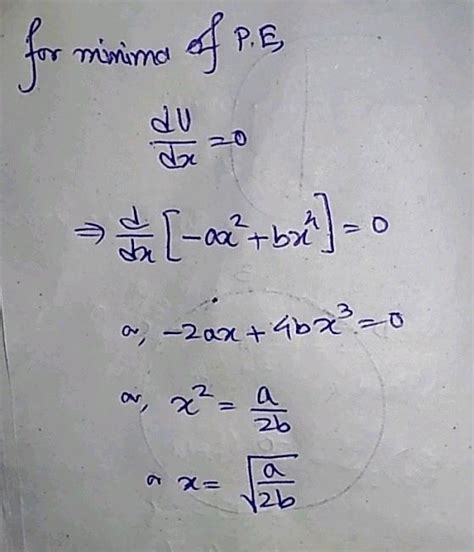 for minima of P.E,
dU/dx = 0
⇒ d/dx [-ax² + bx⁴] = 0
or, -2ax + 4bx³ = 0
or, x² = a/2b
or x = √(a/2b)